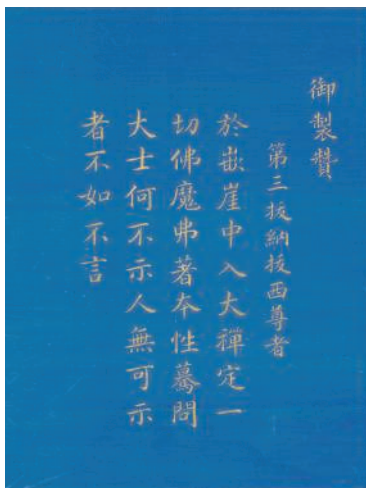 御製贊
第三拔納拔西尊者
於嵌崖中入大禪定一
切佛魔弗著本性驀問
大士何不示人無可示
者不如不言